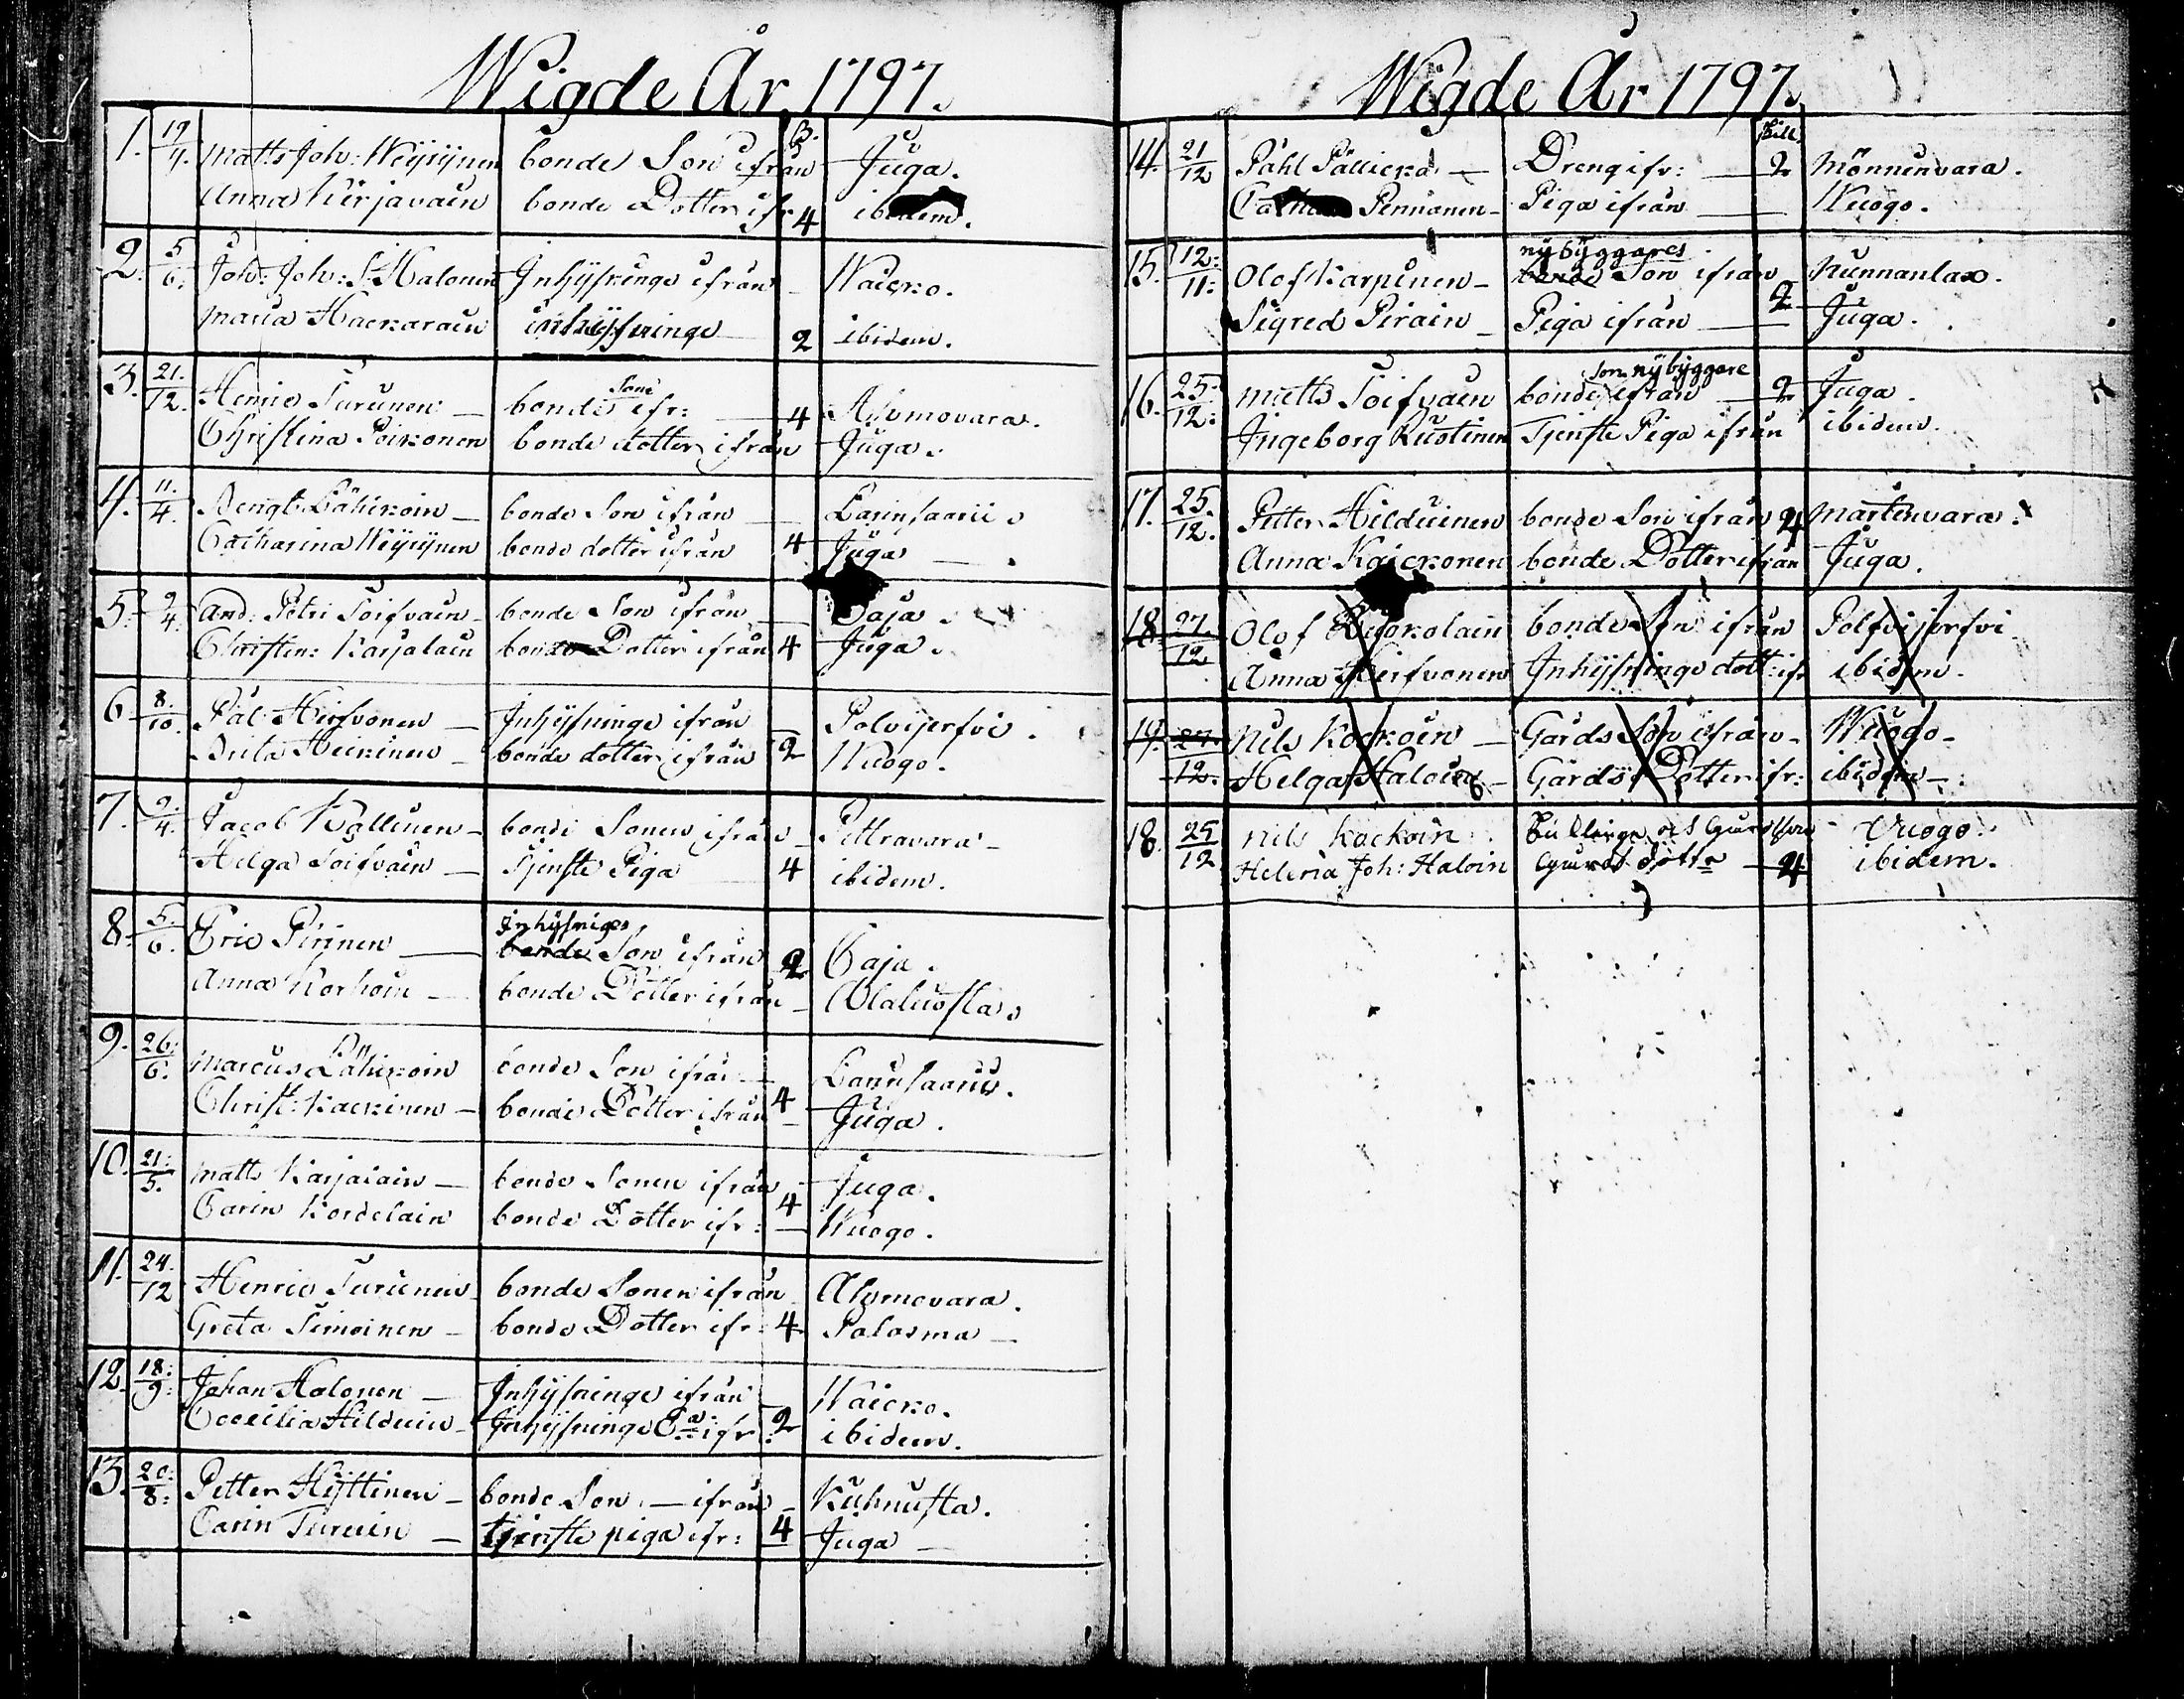 Wigde År 1797.
1. 19/4. Matts Joh: Weyrynen bonde Son ifrån ß. Juga.
Anna Kirjavain bonde Dotter ifr 4 ibidem.
2. 5/6. Joh: Joh: S. Halonen Inhysninge ifrån Waicko.
Maria Hackarain inhysninge 2 ibidem.
3. 21./12. Henric Turunen bonde Sone ifr: 4 Ahmovara.
Christina Poikonen bonde dotter ifrån Juga.
4. 11./4. Bengt Lähikoin bonde Son ifrån Larinsaarii
Catharina Weyrynen bonde dotter ifrån 4 Juga
5. 9/4. And: Petri Toifvain bonde Son ifrån
Christin: Karjalain bonde Dotter ifrån 4 Juga.
6. 8./10. Pål Hirfvonen Inhysninge ifrån Polvijerfvi
Brita Heikinen bonde dotter ifrån 2 Wuogo.
7. 9./4. Jacob Kallinen bonde Sonen ifrån Pittravara
Helga Toifvain Tjenste Piga 4 ibidem.
8. 5./6. Eric Pirinen Inhysniges bonde Son ifrån 2 Caja.
Anna Korhoin bonde Dotter ifrån Alaluosta
9. 26./6. Marcus Lähikoin bonde Son ifrån Larinsaarii.
Christ: Kackinen bonde Dotter ifrån 4 Juga.
10. 21:/5. Matts Karjalain bonde Sonen ifrån Juga.
Carin Kordelain bonde Dotter ifr: 4 Wuogo.
11. 24./12 Henric Turunen bonde Sonen ifrån Ahmovara.
Greta Timoinen bonde Dotter ifr: 4 Polosma
12. 18:/9: Johan Halonen Inhysninge ifrån Waicko.
Coecilia Hilduin Inhysninge Ea: ifr 2 ibidem.
13. 20:/8: Petter Hyttinen bonde Son ifrån Kuhnusta.
Carin Turuin tjenste piga ifr: 4 Juga
Wigde År 1797.
14. 21/12 Påhl Pällickä Dreng ifr: Sill. 2 Mönninvara.
Pennanen Piga ifrån Wuogo.
15. 12:/11: Olof Karpinen nybyggares bonde Son ifrån Kunnanlax.
Sigred Pirain Piga ifrån 2 Juga.
16. 25:/12: Matts Toifvain bonde Son nybyggare ifrån 2 Juga.
Ingeborg Ruotinen Tjenste Piga ifrån ibidem.
17. 25./12. Petter Hilduinen bonde Son ifrån 4 Martinvara.
Anna Kaickonen bonde Dotter ifrån Juga.
18. 27./12 Olof bonde Son ifrån Polfvijerfvi
Anna Hirfvonen Inhysninge dott: ifr ibidem.
19. 27./12. Nils Kockoin Gårds Son ifrån Wuogo
Helga Haloin Gårds Dotter ifr: ibidem
18. 25/12 Nils Kockoin Vuogo.
Helena Joh: Haloin Gårds dotter 4 ibidem.